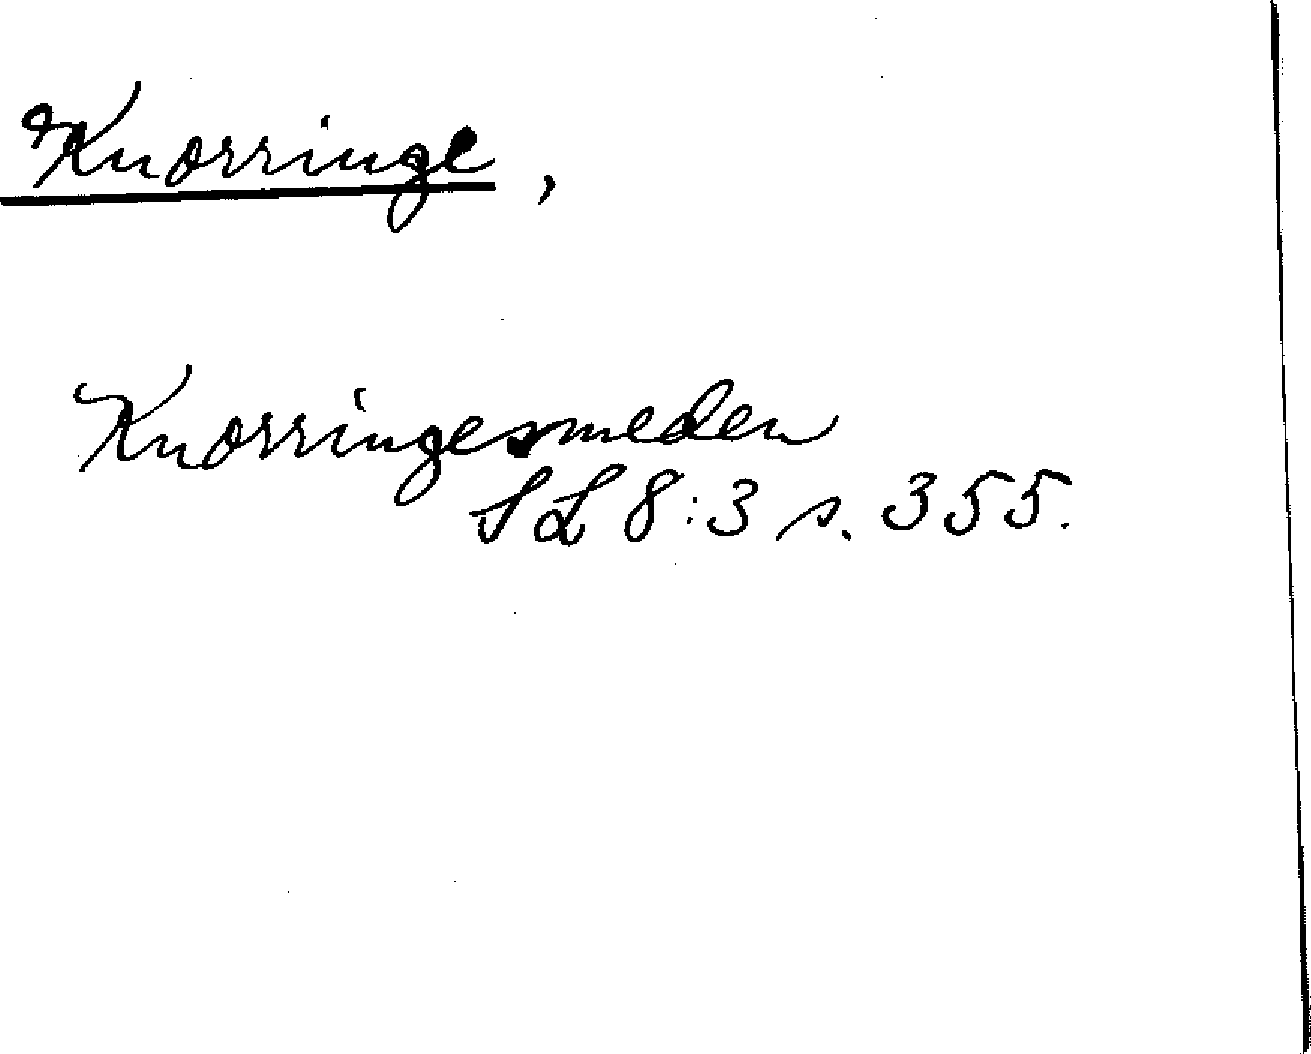 Knorringe,
Knorringesmeden
SL 8:3 s. 355.